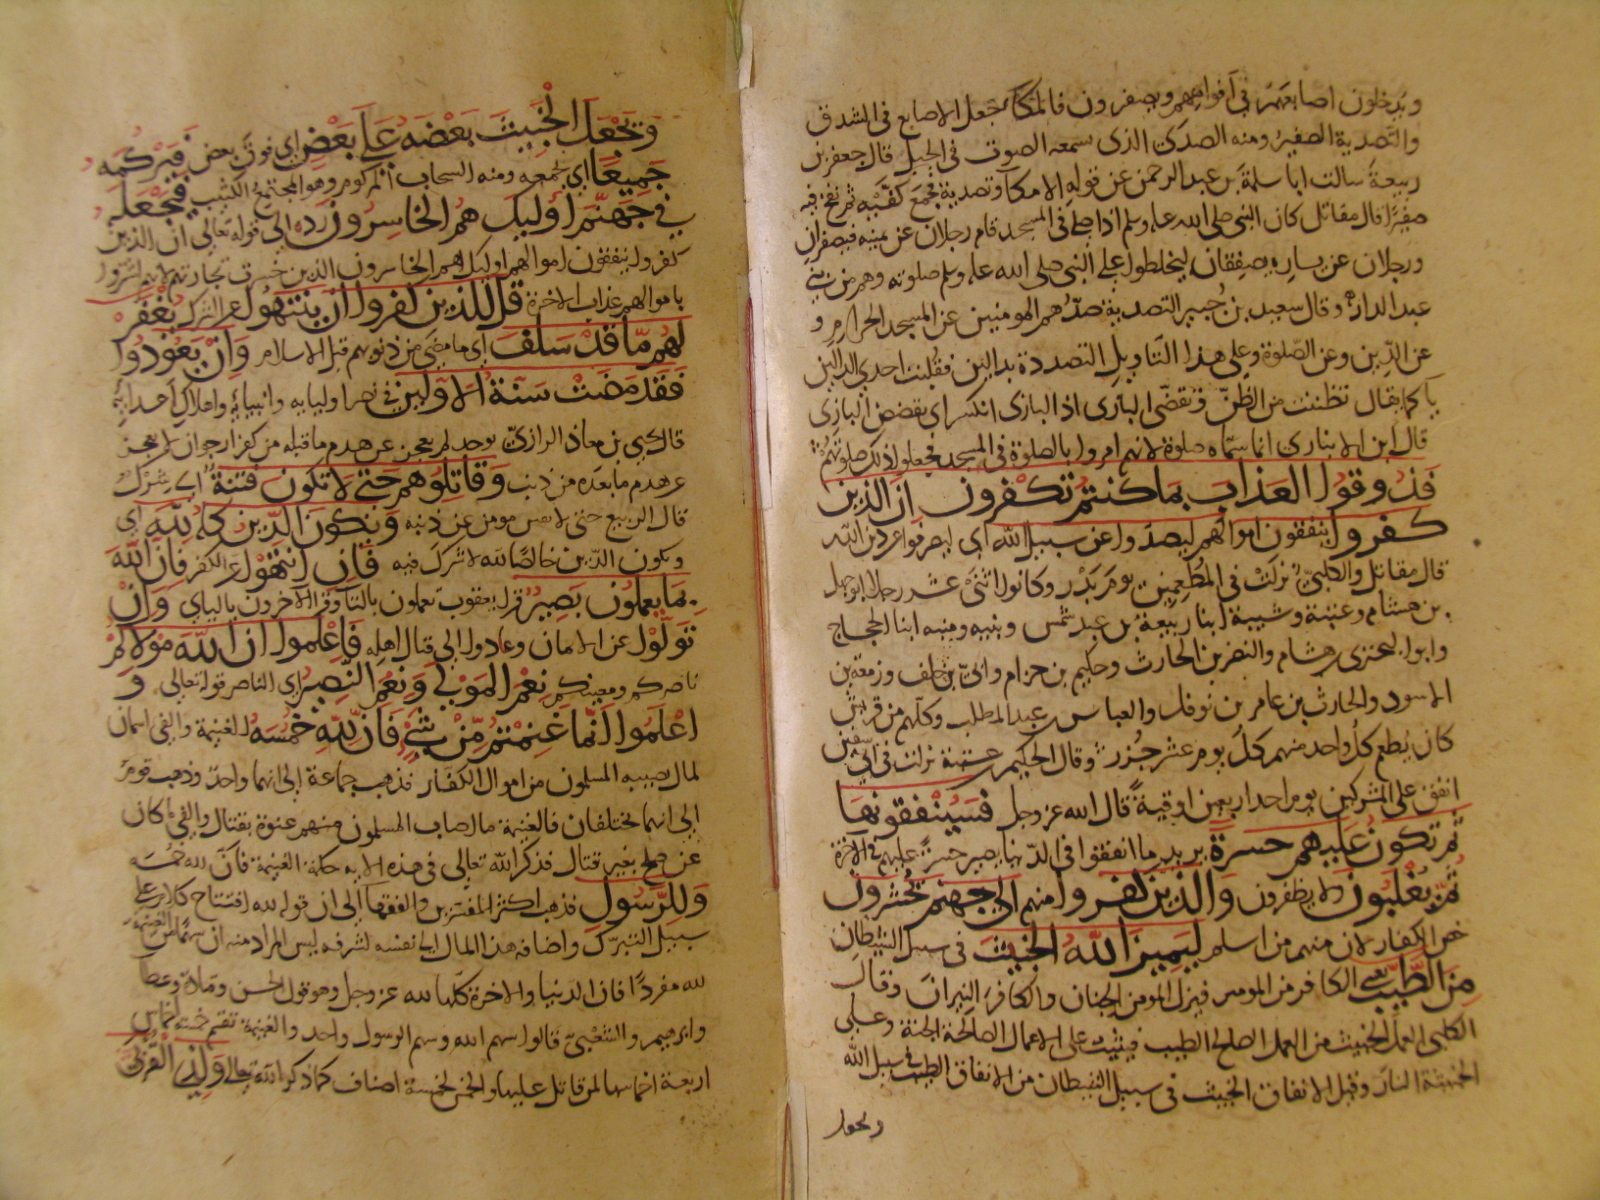 ويدخلون اصابعهم في افواههم ويصفرون فالمكا جعل الاصابع في الشدق
والتصدية الصفير ومنه الصدى الذى سمعه الصوت في الجبل قال جعفر بن
ربيعة سالت ابا سلمة بن عبد الرحمن عن قوله الا مكا وتصدية فجمع كفيه ثم نفخ فيه
صفيرا قال مقاتل كان النبي صلى الله عليه وسلم اذا صلى في المسجد قام رجلان عن يمينه فيصفران
ورجلان عن يساره يصفقان ليخلطوا على النبي صلى الله عليه وسلم صلوته وهم من بني
عبد الدار وقال سعيد بن جبير التصدية صدهم المومنين عن المسجد الحرام و
عن الدين وعن الصلوة وعلى هذا التاويل التصددة بدالين فقلبت احدى الدالين
يا كما يقال تظنيت من الظن وتقضى البازى اذا البازى انكسر اى يقضض البازى
قال ابن الانبارى انما سماه صلوة لانهم امروا بالصلوة في المسجد فجعلوا ذلك صلوتهم
فذوقوا العذاب بما كنتم تكفرون ان الذين
كفروا ينفقون اموالهم ليصدوا عن سبيل الله اى ليصرفوا عن دين الله
قال مقاتل والكلبي نزلت في المطعمين يوم بدر وكانوا اثنى عشر رجلا ابو جهل
بن هشام وعتبة وشيبة ابنا ربيعة بن عبد شمس ونبيه ومنبه ابنا الحجاج
وابو البحترى بن هشام والنضر بن الحارث وحكيم بن حزام وابي بن خلف وزمعة بن
الاسود والحارث بن عامر بن نوفل والعباس بن عبد المطلب وكلهم من قريش
كان يطعم كل واحد منهم كل يوم عشر جزر وقال الحكيم بن عتيبة نزلت في ابي سفين
انفق على المشركين يوم احد اربعين اوقية قال الله عز وجل فسينفقونها
ثم تكون عليهم حسرة يريد ما انفقوا في الدنيا يصير حسرة عليهم في الآخرة
ثم يغلبون ولا يظفرون والذين كفروا منهم الى جهنم يحشرون
خص الكفار لان منهم من اسلم ليميز الله الخبيث في سبيل الشيطان
من الطيب يعني الكافر من المومن فينزل المومن الجنان والكافر النيران وقال
الكلبي العمل الخبيث من العمل الصالح الطيب فيثيب على الاعمال الصالحة الجنة وعلى
الخبيثة النار وقيل الانفاق الخبيث في سبيل الشيطان من الانفاق الطيب في سبيل الله
ويجعل
ويجعل الخبيث بعضه على بعض اي فوق بعض فيركمه
جميعا اي يجمعه ومنه السحاب المركوم وهو المجتمع الكثيف فيجعله
في جهنم اوليك هم الخاسرون رده الى قوله تعالى ان الذين
كفروا ينفقون اموالهم اوليك هم الخاسرون الذين خسرت تجارتهم لانهم اشتروا
باموالهم عذاب الاخرة قل للذين كفروا ان ينتهوا عن الشرك يغفر
لهم ما قد سلف اي ما مضى من ذنوبهم قبل الاسلام وان يعودوا
فقد مضت سنة الاولين في نصر اوليايه وانبيايه واهلاك اعدايه
قال يحيى بن معاذ الرازي توحيد لم يعجز عن هدم ما قبله من كفر ارجو ان لا يعجز
عن هدم ما بعده من ذنب وقاتلوهم حتى لا تكون فتنة اي شرك
قال الربيع حتى لا يفتن مومن عن دينه ويكون الدين كله لله اي
ويكون الدين خالصا لله لا شرك فيه فان انتهوا عن الكفر فان الله
بما يعملون بصير قرا يعقوب تعملون بالتا وقرا الاخرون بالياى وان
تولوا عن الامان وعادوا الى قتال اهله فاعلموا ان الله مولاكم
ناصركم ومعينكم نعم المولى ونعم النصير اي الناصر قوله تعالى و
اعلموا انما غنمتم من شيء فان لله خمسه الغنيمة والفي اسمان
لمال يصيبه المسلمون من اموال الكفار فذهب جماعة الى انهما واحد وذهب قوم
الى انهما مختلفان فالغنيمة ما اصاب المسلمون منهم عنوة بقتال والفي ما كان
عن صلح بغير قتال فذكر الله تعالى في هذه الاية حكم الغنيمة فان لله خمسه
وللرسول فذهب اكثر المفسرين والفقها الى ان قوله لله افتتاح كلام على
سبيل التبرك واضافة هذا المال الى نفسه لشرفه ليس المراد منه ان سهما من الغنيمة
لله مفردا فان الدنيا والاخرة كلها لله عز وجل وهو قول الحسن وقتادة وعطا
وابرهيم والشعبي قالوا سهم الله وسهم الرسول واحد والغنيمة تقسم خمسة اخماس
اربعة اخماسها لمن قاتل عليها والخمس لخمسة اصناف كما ذكر الله تعالى ولذي القربى